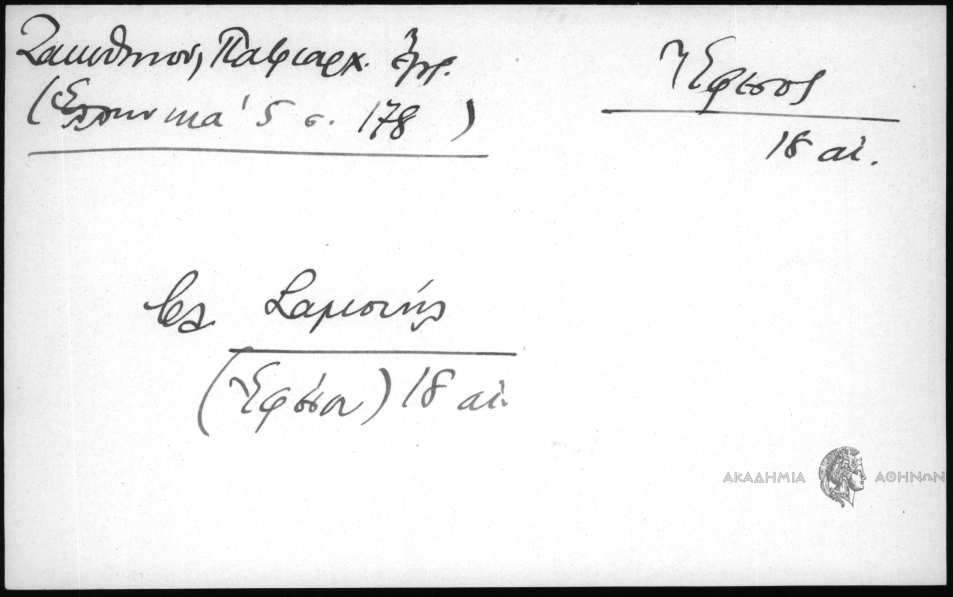 Ζακυθηνού, Πατριαρχ. Έγγρ.
(Ελληνικά 5 σ. 178)
Έφεσος
18 αἰ.
βλ. Σαμισινής
(Εφέσου) 18 αἰ.
ΑΚΑΔΗΜΙΑ ΑΘΗΝΩΝ